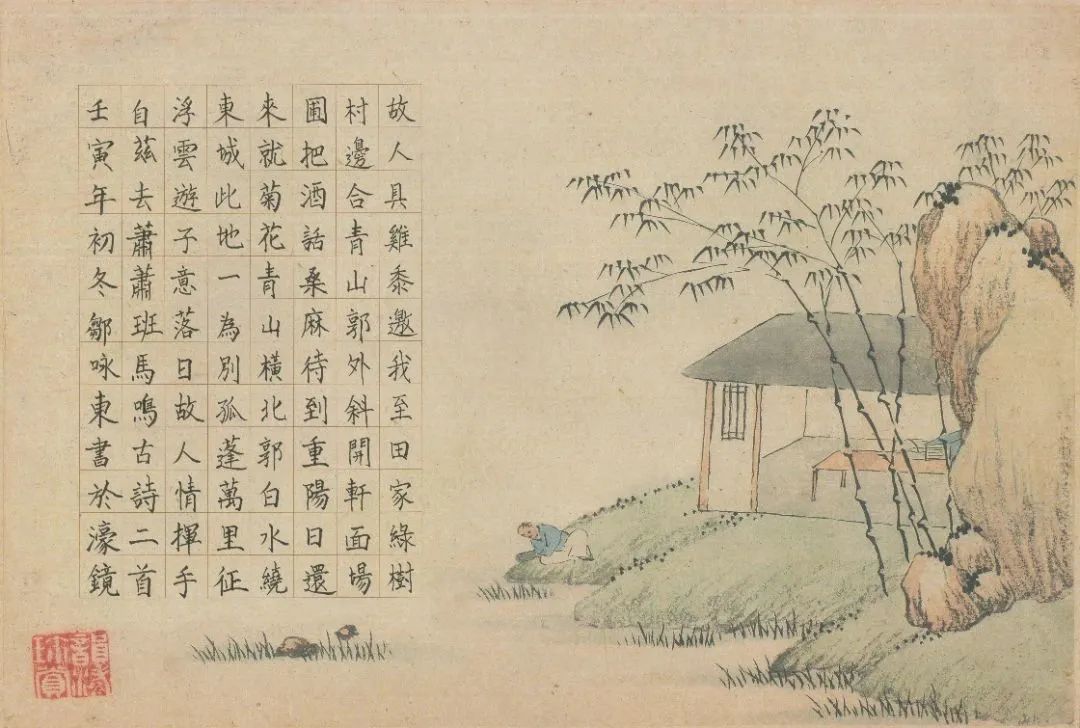 故人具雞黍邀我至田家綠樹
村邊合青山郭外斜開軒面場
圃把酒話桑麻待到重陽日還
來就菊花青山橫北郭白水繞
東城此地一為別孤蓬萬里征
浮雲遊子意落日故人情揮手
自茲去蕭蕭班馬鳴古詩二首
壬寅年初冬鄒咏東書於濠鏡